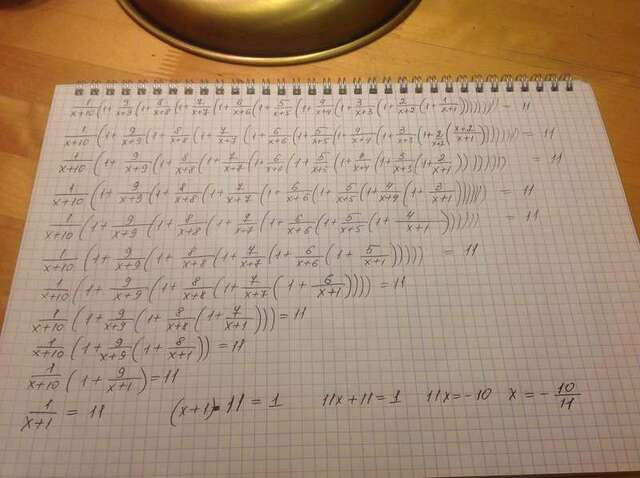 1/(x+10) (1 + 9/(x+9) (1 + 8/(x+8) (1 + 7/(x+7) (1 + 6/(x+6) (1 + 5/(x+5) (1 + 4/(x+4) (1 + 3/(x+3) (1 + 2/(x+2) (1 + 1/(x+1)))))))))) = 11
1/(x+10) (1 + 9/(x+9) (1 + 8/(x+8) (1 + 7/(x+7) (1 + 6/(x+6) (1 + 5/(x+5) (1 + 4/(x+4) (1 + 3/(x+3) (1 + 2/(x+2) (x+2)/(x+1))))))))) = 11
1/(x+10) (1 + 9/(x+9) (1 + 8/(x+8) (1 + 7/(x+7) (1 + 6/(x+6) (1 + 5/(x+5) (1 + 4/(x+4) (1 + 3/(x+3) (1 + 2/(x+1)))))))))) = 11
1/(x+10) (1 + 9/(x+9) (1 + 8/(x+8) (1 + 7/(x+7) (1 + 6/(x+6) (1 + 5/(x+5) (1 + 4/(x+4) (1 + 3/(x+1)))))))) = 11
1/(x+10) (1 + 9/(x+9) (1 + 8/(x+8) (1 + 7/(x+7) (1 + 6/(x+6) (1 + 5/(x+5) (1 + 4/(x+1)))))))) = 11
1/(x+10) (1 + 9/(x+9) (1 + 8/(x+8) (1 + 7/(x+7) (1 + 6/(x+6) (1 + 5/(x+1))))))  = 11
1/(x+10) (1 + 9/(x+9) (1 + 8/(x+8) (1 + 7/(x+7) (1 + 6/(x+1))))) = 11
1/(x+10) (1 + 9/(x+9) (1 + 8/(x+8) (1 + 7/(x+1)))) = 11
1/(x+10) (1 + 9/(x+9) (1 + 8/(x+1))) = 11
1/(x+10) (1 + 9/(x+1)) = 11
1/(x+1) = 11 (x+1)·11 = 1 11x+11=1 11x=-10 x = -10/11